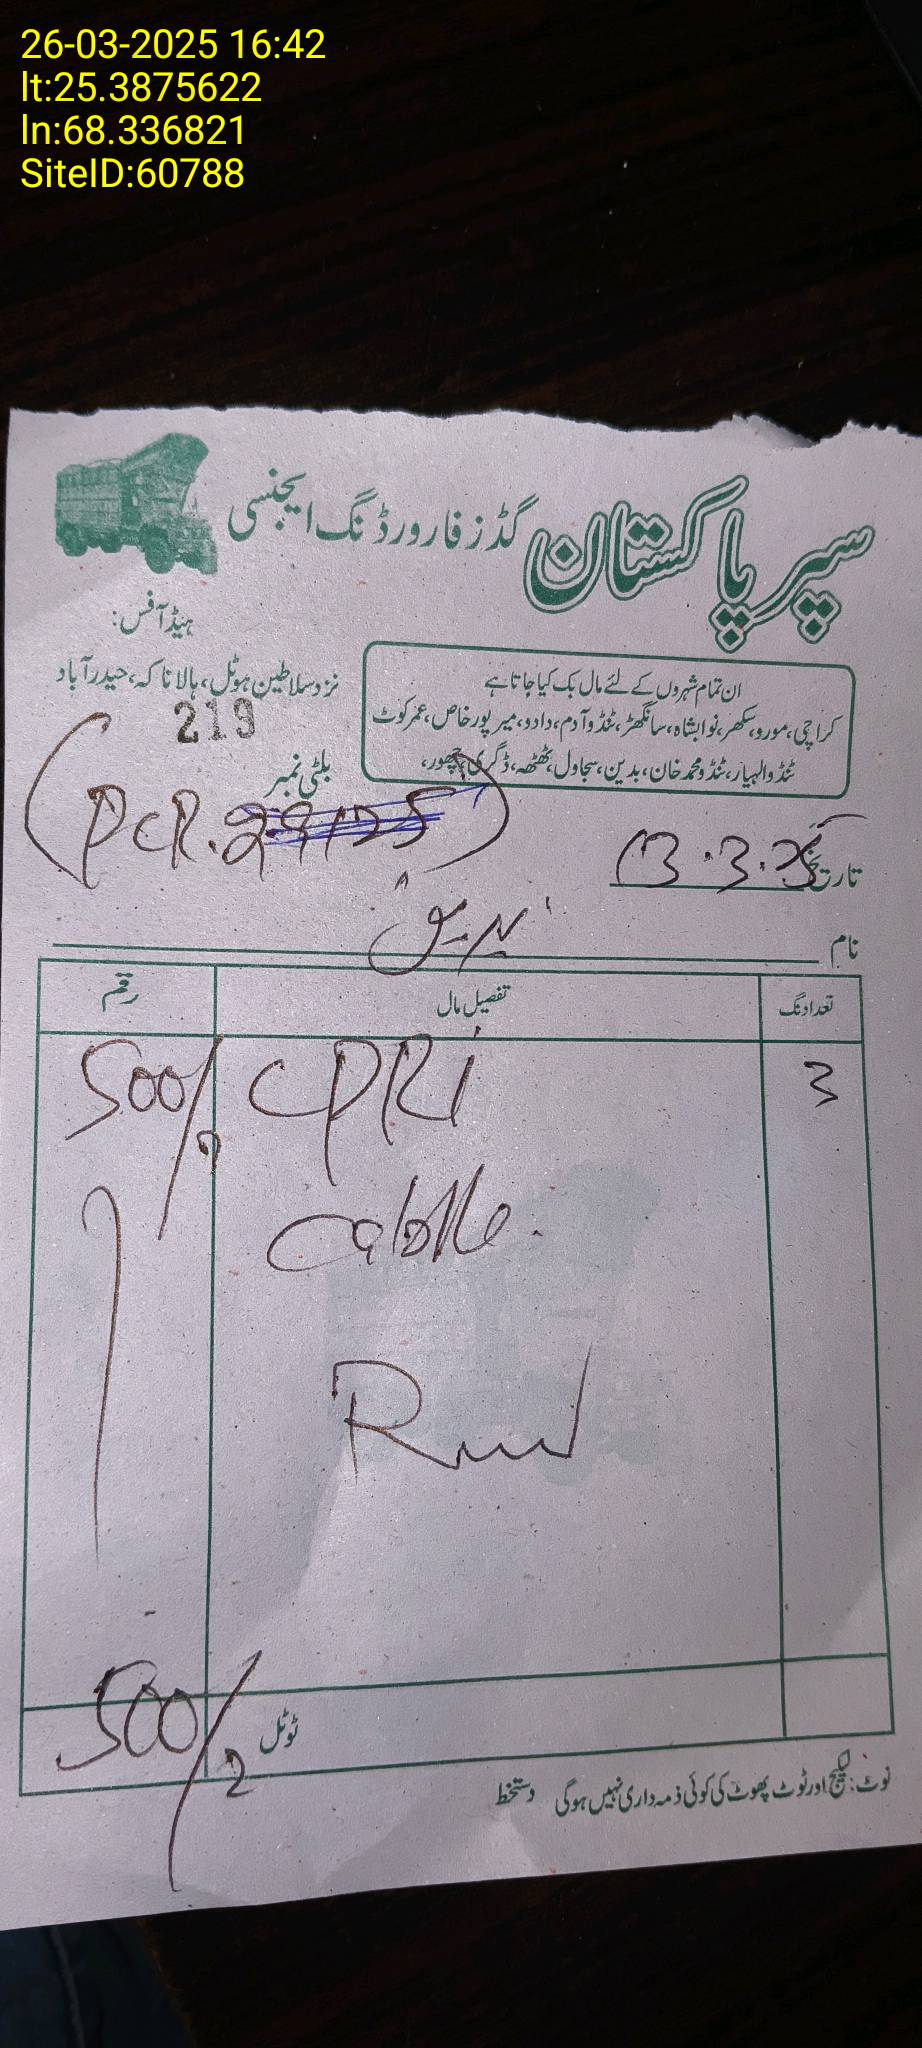 26-03-2025 16:42
lt:25.3875622
ln:68.336821
SiteID:60788
سپر پاکستان گڈز فارورڈنگ ایجنسی
ہیڈ آفس:
نزد سلاطین ہوٹل، ہالا ناکہ، حیدرآباد
ان تمام شہروں کے لئے مال بک کیا جاتا ہے
کراچی، مورو، سکھر، نوابشاہ، سانگھڑ، ٹنڈو آدم، دادو، میرپورخاص، عمرکوٹ
ٹنڈوالہیار، ٹنڈو محمد خان، بدین، سجاول، ٹھٹھہ، ڈگری، چھور،
219
بلٹی نمبر
(PCR. 29125)
تاریخ 13.3.25
نام
تعداد نگ تفصیل مال رقم
3 CPRi 500/
Cable
500/ ٹوٹل
نوٹ: لیکیج اور ٹوٹ پھوٹ کی کوئی ذمہ داری نہیں ہوگی دستخط